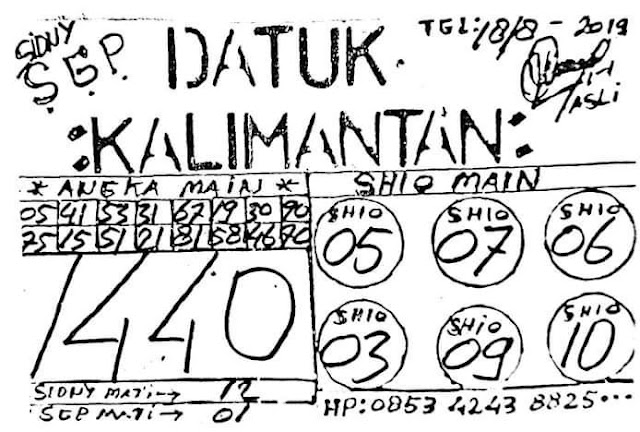 SIDNY
S.G.P.
DATUK
TGL: 18/8 - 2019
ASLI
:KALIMANTAN:
* ANGKA MAIN *
SHIO MAIN
05 41 53 31 67 19 30 90
75 15 51 21 81 58 46 70
SHIO 05
SHIO 07
SHIO 06
1440
SHIO 03
SHIO 09
SHIO 10
SIDNY MATI → 12
SGP MATI → 01
HP: 0853 4243 8825...